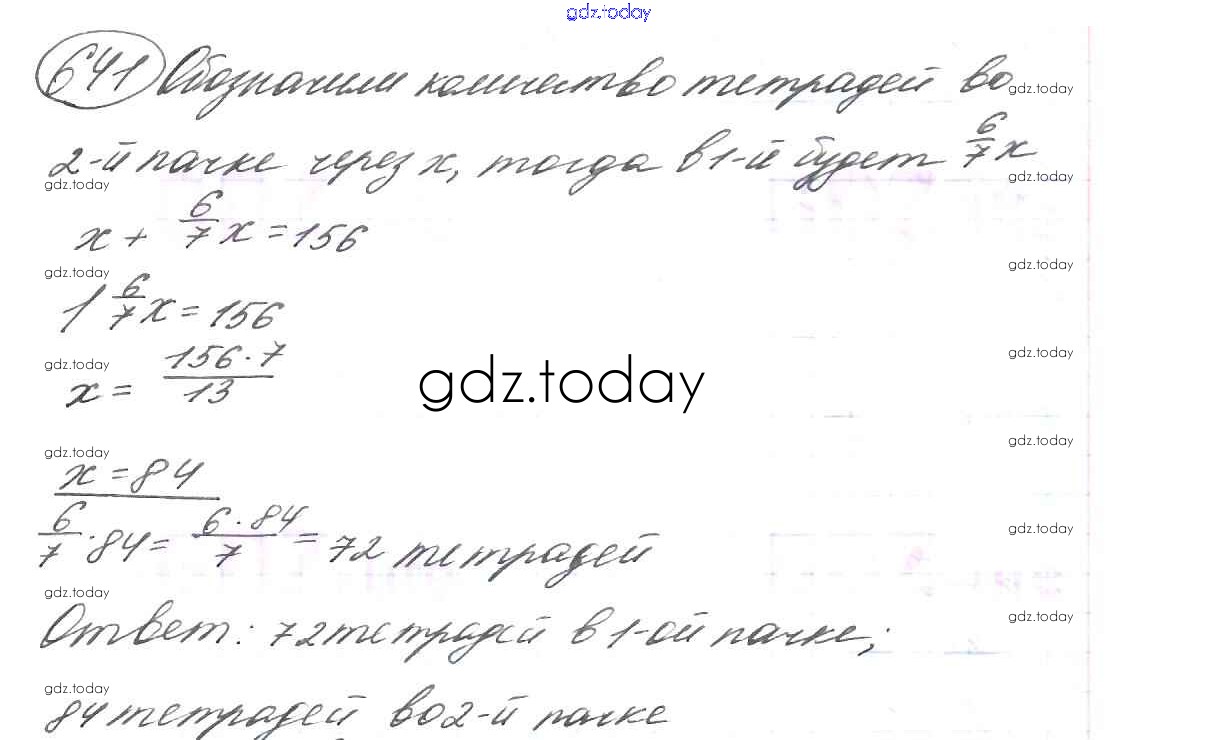 gdz.today
641 Обозначим количество тетрадей во gdz.today
2-й пачке через x, тогда в 1-й будет 6/7 x
gdz.today gdz.today
x + 6/7 x = 156
gdz.today gdz.today
1 6/7 x = 156
gdz.today gdz.today
x = 156·7/13
gdz.today
gdz.today gdz.today
x = 84
6/7 · 84 = 6·84/7 = 72 тетрадей gdz.today
gdz.today
Ответ: 72 тетрадей в 1-ой пачке; gdz.today
gdz.today
84 тетрадей во 2-й пачке